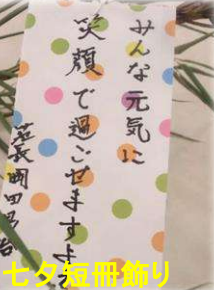 みんな元気に
笑顔で過ごせますよ
岡田
七夕短冊飾り